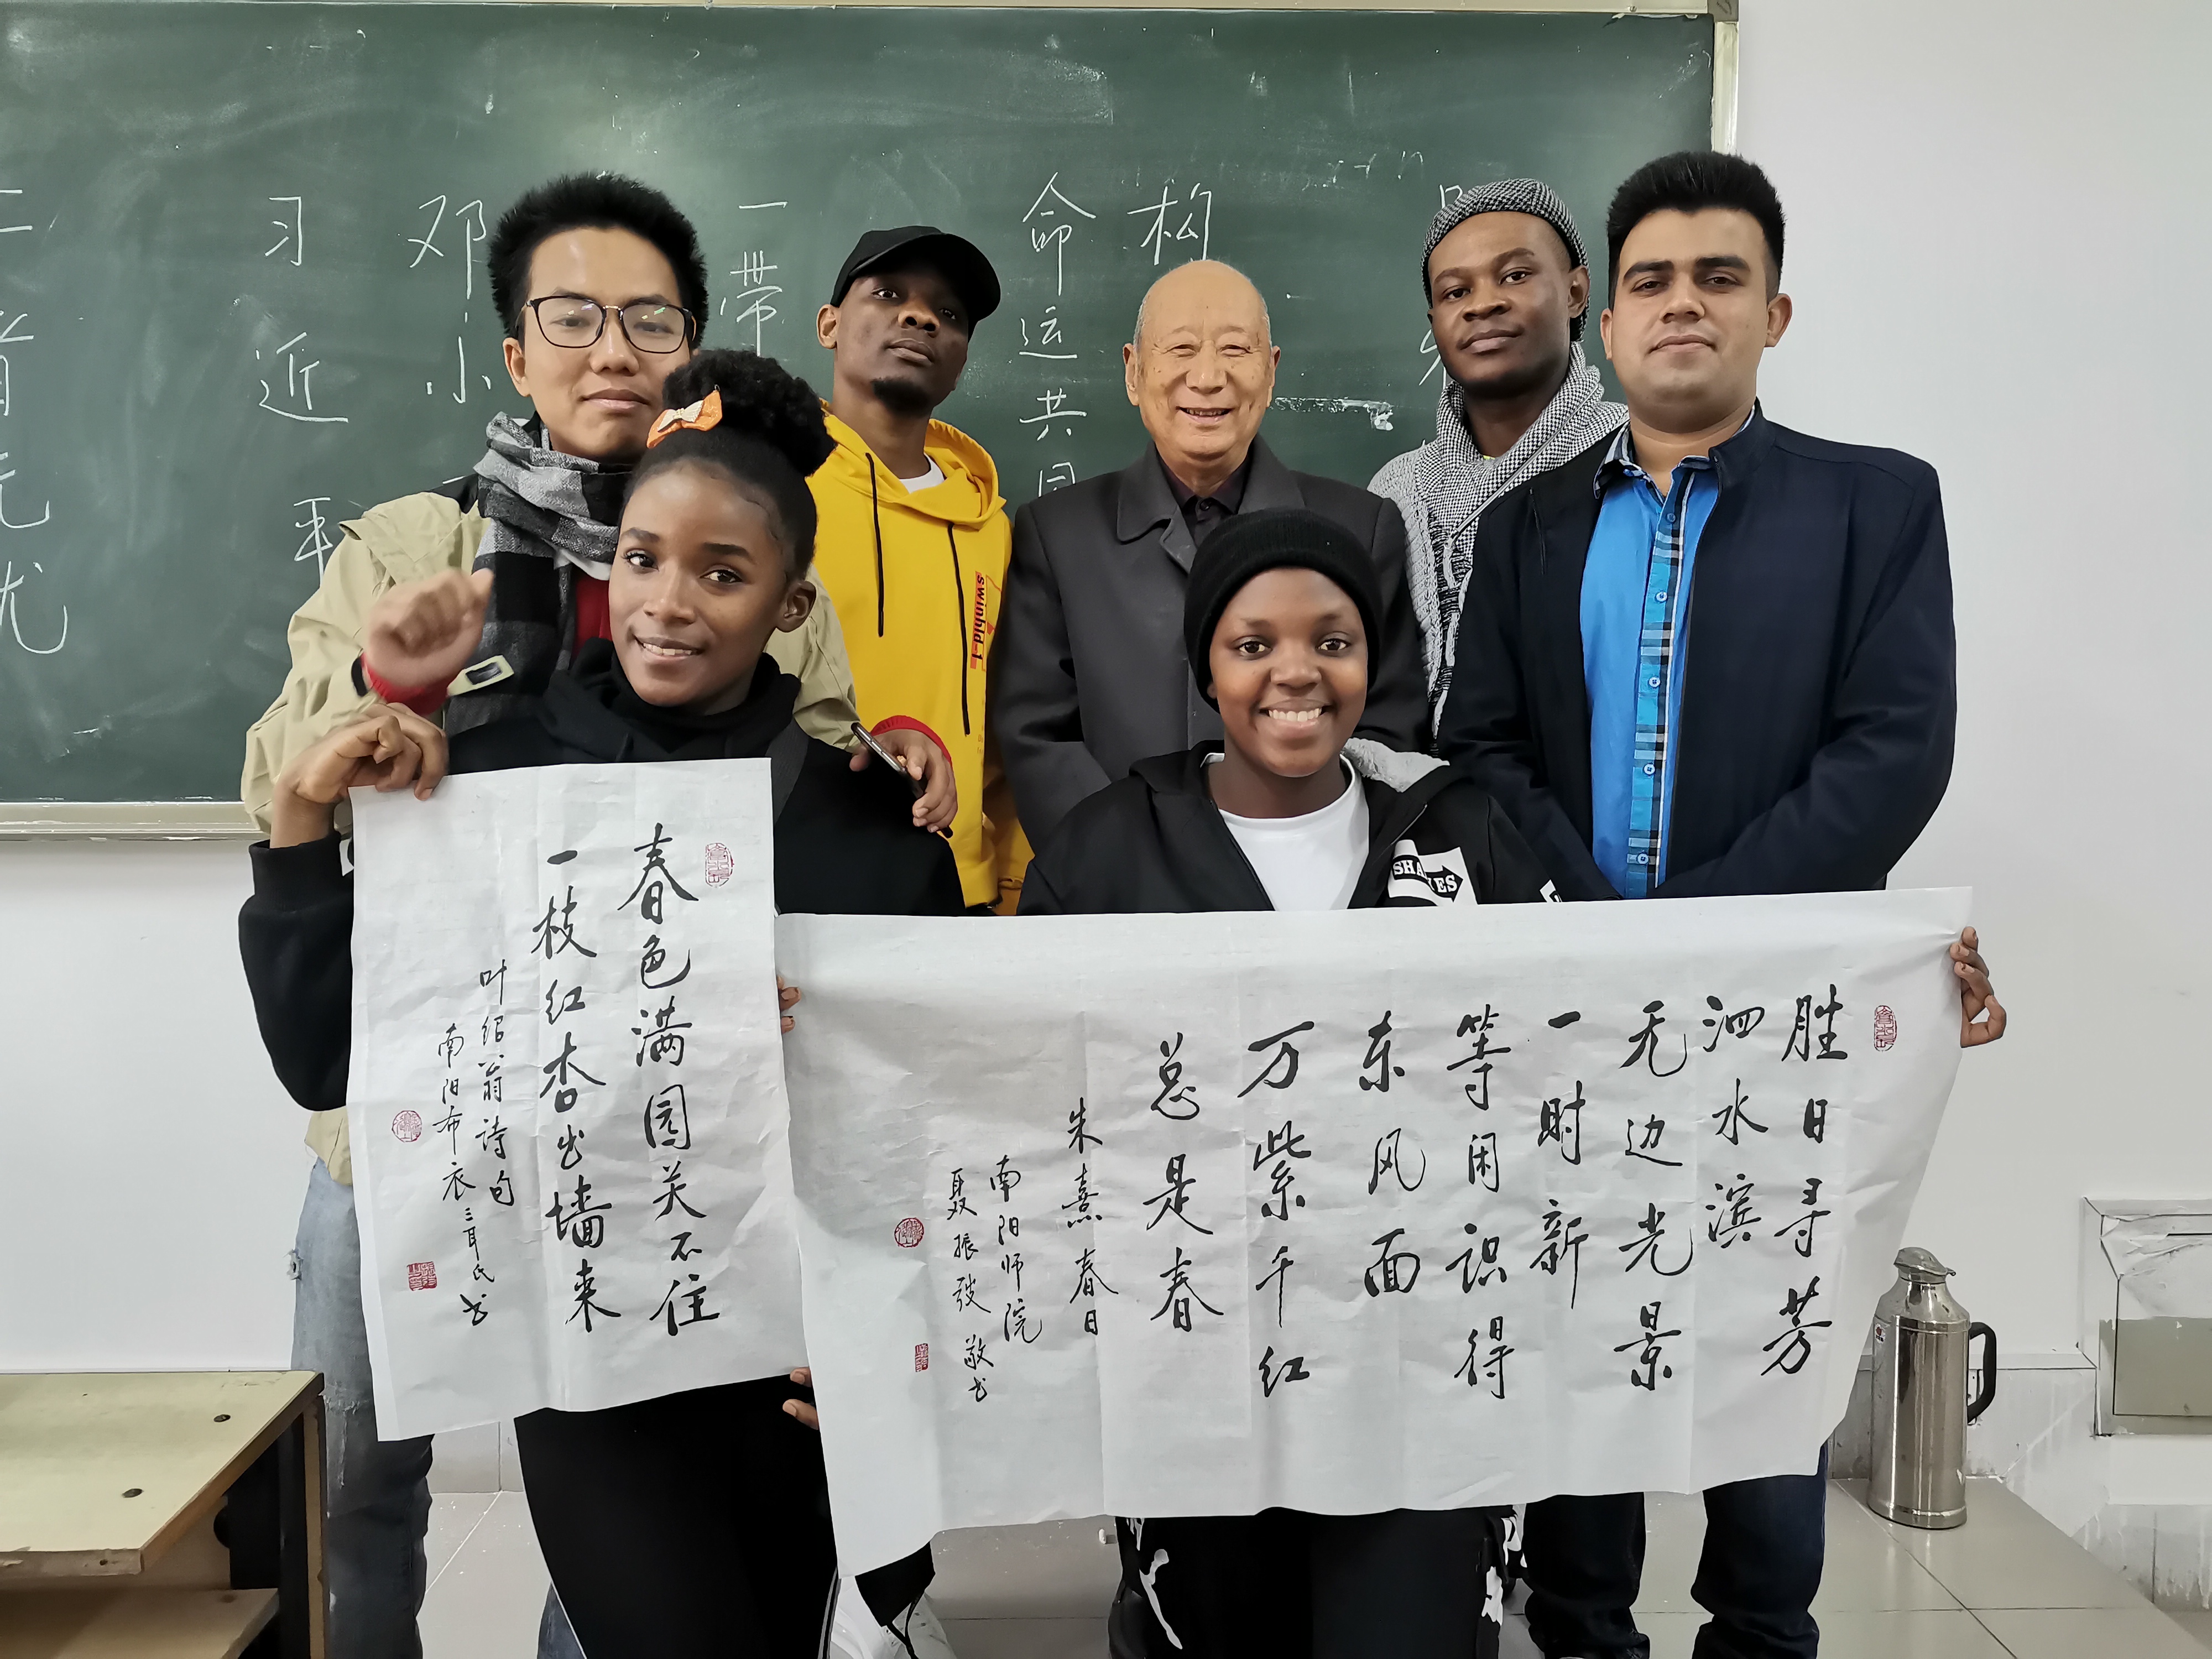 习近平
邓小
一带
命运共同
构
swinhld-1
春色满园关不住
一枝红杏出墙来
叶绍翁诗句
南阳布衣三耳氏书
胜日寻芳
泗水滨
无边光景
一时新
等闲识得
东风面
万紫千红
总是春
朱熹春日
南阳师院
聂振弢敬书